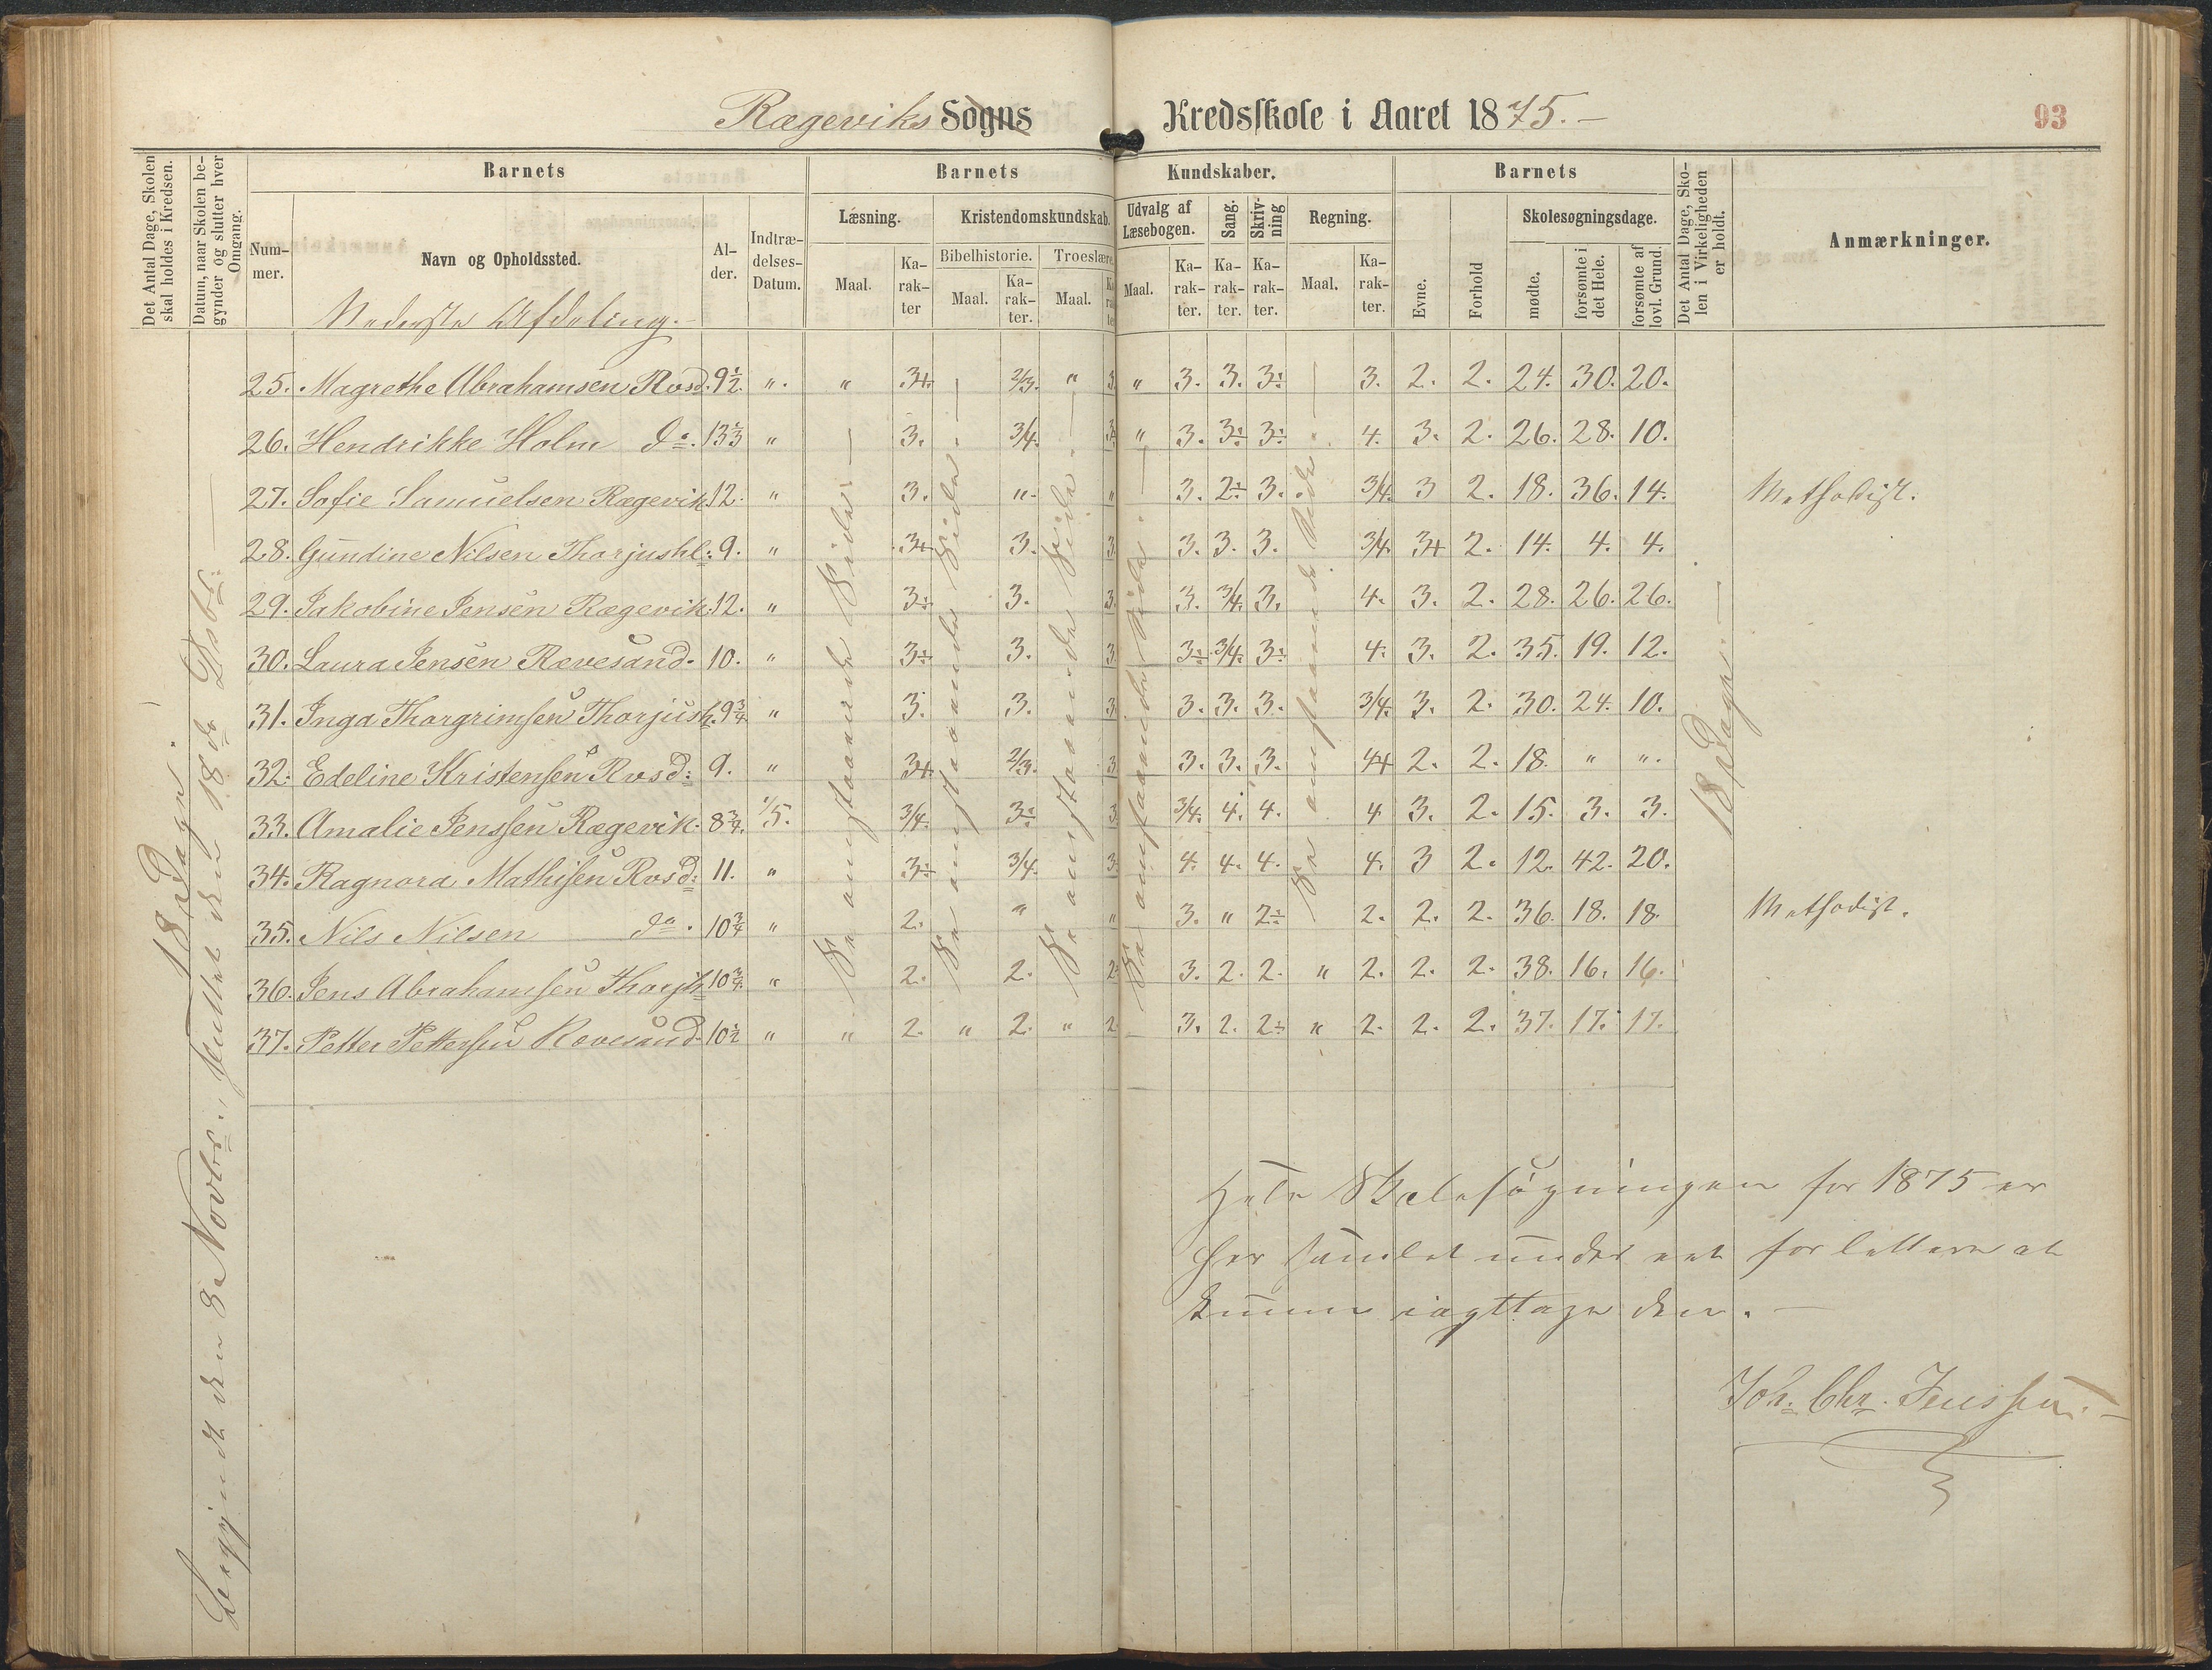 Rægeviks Sogns Kredsskole i Aaret 1875. –
93
Det Antal Dage, Skolen skal holdes i Kredsen.
Datum, naar Skolen begynder og slutter hver Omgang.
Barnets
Num-mer.
Navn og Opholdssted.
Al-der.
Indtræ-delses-Datum.
Barnets Kundskaber.
Læsning.
Maal.
Ka-rak-ter
Kristendomskundskab.
Bibelhistorie.
Maal.
Ka-rak-ter.
Troeslære.
Maal.
Udvalg af Læsebogen.
Maal.
Ka-rak-ter.
Sang.
Ka-rak-ter.
Skriv-ning
Ka-rak-ter.
Regning.
Maal.
Ka-rak-ter.
Barnets
Evne.
Forhold
Skolesøgningsdage.
mødte.
forsømte i det Hele.
forsømte af lovl. Grund.
Det Antal Dage, Skolen i Virkeligheden er holdt.
Anmærkninger.
Nederste Afdeling. –
25. Magrethe Abrahamsen Rvsd. 9½ ". " 3+. 2/3. " 3. " 3. 3. 3÷ 3. 2. 2. 24. 30. 20.
26. Hendrikke Holm do. 13⅓ " 3. 3/4. " 3. 3÷ 3÷ 4. 3. 2. 26. 28. 10.
27. Sofie Samuelsen Rægevik 12. " 3. " " 3. 2÷ 3. 3/4 3 2. 18. 36. 14. Methodist.
28. Gundine Nilsen Thorjushl: 9. " 3+ 3. 3. 3. 3. 3. 3/4 3+ 2. 14. 4. 4.
29. Jakobine Jensen Rægevik 12. " 3÷ 3. 3. 3. 3/4. 3. 4. 3. 2. 28. 26. 26.
30. Laura Jensen Rævesand. 10. " 3÷ 3. 3. 3÷ 3/4. 3÷ 4. 3. 2. 35. 19. 12.
31. Inga Thorgrimsen Thorjush. 9¾ " 3. 3. 3. 3. 3. 3. 3/4. 3. 2. 30. 24. 10.
32. Edeline Kristensen Rvsd: 9. " 3+ 2/3. 3. 3. 3. 3. 4+ 2. 2. 18. " ".
33. Amalie Jenssen Rægevik. 8¾. 1/5. 3/4. 3÷ 3. 3/4. 4. 4. 4 3. 2. 15. 3. 3.
34. Ragnora Mathisen Rvsd: 11. " 3÷ 3/4. 3. 4. 4. 4. 4. 3 2. 12. 42. 20.
35. Nils Nilsen do. 10¾ " 2. " " 3. " 2÷ 2. 2. 2. 36. 18. 18. Methodist.
36. Jens Abrahamsen Thorjh 10¾. " 2. 2. 2. 3. 2. 2. " 2. 2. 2. 38. 16. 16.
37. Petter Pettersen Revesand. 10½ " " 2. " 2. " 2. 3. 2. 2÷ " 2. 2. 2. 37. 17. 17.
18 Dage.
Begyndt den 3die Novbr., sluttet den 18de Dsbr.
Se omstaaende Side. –
Se omstaaende Side.
Se omstaaende Side.
Se omstaaende Side.
Se omstaaende Side.
18 Dage. –
Hele Skolesøgningen for 1875 er
her samlet under eet for lettere at
kunne iagttage den. –
Joh. Chr. Jenssen. –